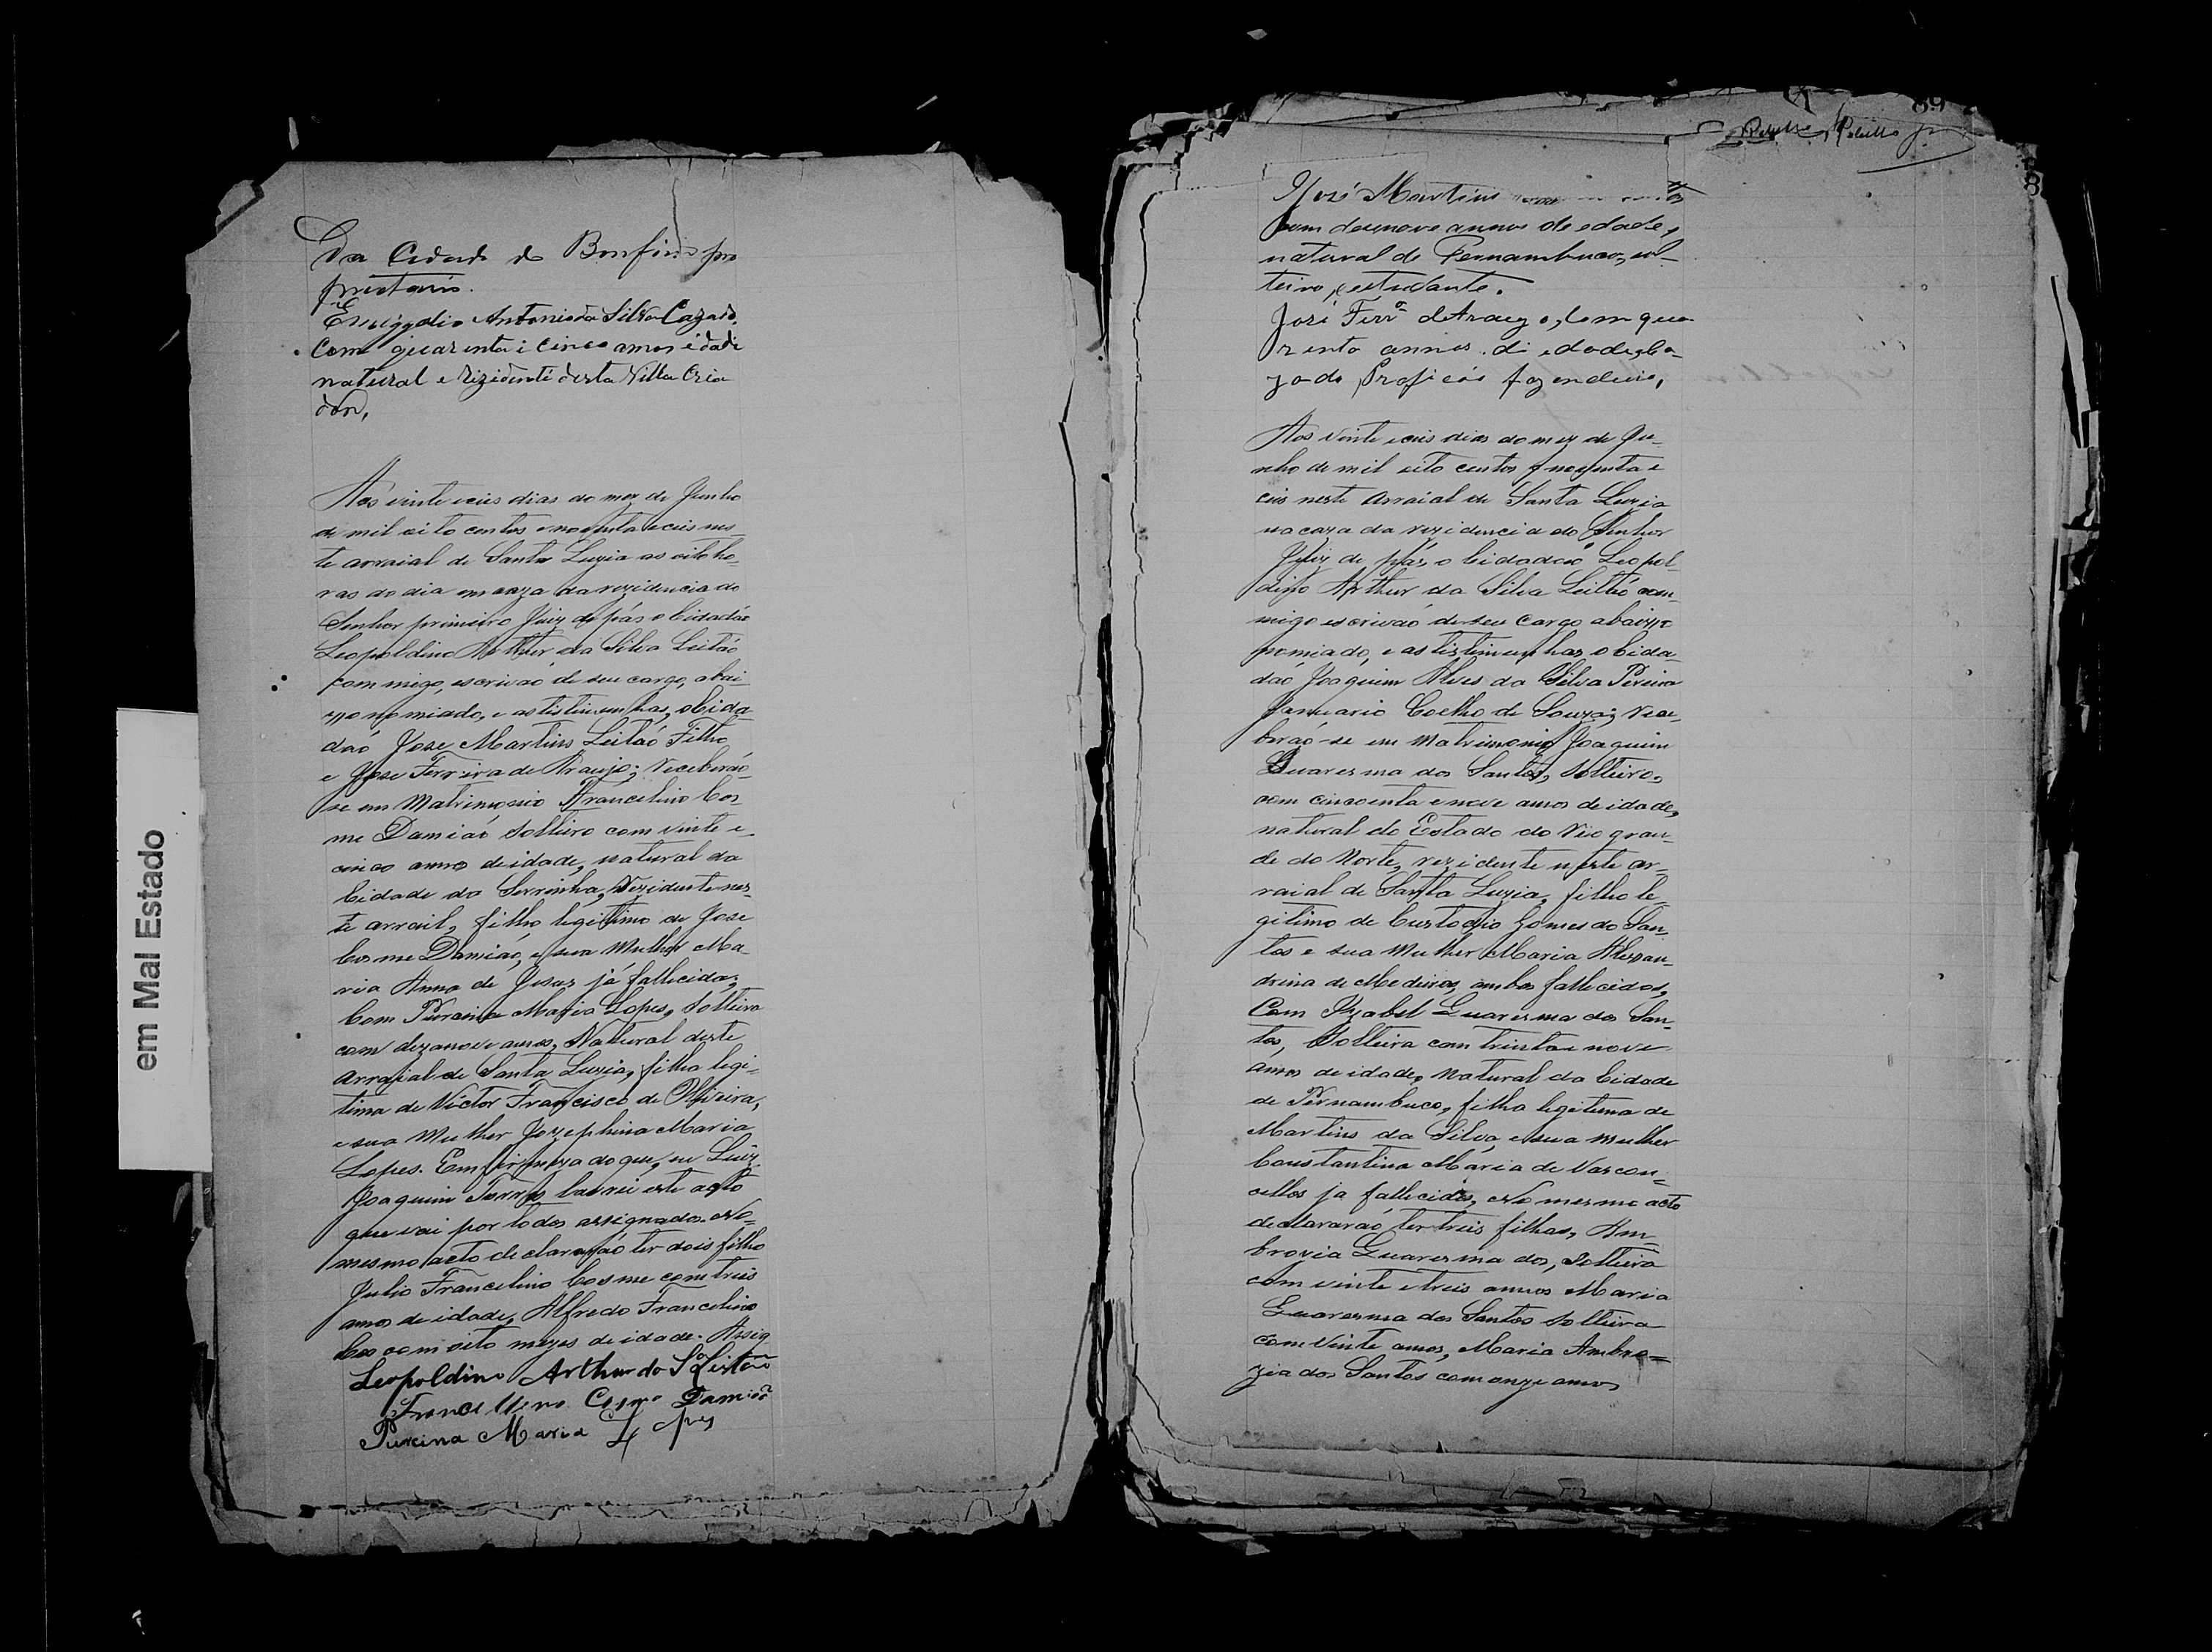 em Mal Estado
Da Cidade do Bonfim pro
prietario.
Emigydio Antonio da Silva Cazado,
Com quarenta i cinco annos idadi
natural e rizidenti desta Villa Cria
dor,
Aos vinte ceis dias do mez de Junho
de mil oito centos e noventa e ceis nes
te arraial de Santa Luzia as oito ho-
ras do dia em caza da rezidencia do
Senhor primeiro Juiz de pás o Cidadão
Leopoldino Arthur da Silva Leitão
com migo, escrivão de seu cargo, abai-
xo nomiado, e as tistimunhas, o Cida-
dão Jose Martins Leitão Filho
e Jose Ferreira de Araujo; receberão-
se em Matrimonio Francelino Cos-
me Damião Solteiro com vinte e
cinco annos de idade, natural da
Cidade da Serrinha, rezidente nes-
te arrail, filho legitimo de Jose
Cosme Damião, e sua Mulher Ma-
ria Anna de Jesus já fallecida;
Com Purcina Maria Lopes, Solteira
com dezanove annos, Natural deste
Arraial de Santa Luzia, filha legi-
tima de Victor Francisco de Oliveira,
e sua Mulher Jozephina Maria
Lopes. Em firmeza do que, eu Luiz
Joaquim Torres lavrei este acto
que vai por todos assignados. No
mesmo acto declararão ter dois filho
Julio Francelino Cosme com treis
annos de idade, Alfredo Francelino
Cos com oito mezes de idade. Assig
Leopoldino Arthur da Sª Leitão
Francellino Cosmo Damião
Purcina Maria Lopes
89
Rebello Rebello Jr
8
José Martins
com desnove annos de edade,
natural de Pernambuco, sol-
teiro, estudante.
José Ferrª de Araujo, com qua
renta annos di edade, ca-
zado Proficão fazendeiro,
Aos vinte ceis dias do mez de Ju-
nho de mil oito centos e noventa e
ceis neste Arraial de Santa Luzia
na caza da rezidencia do Senhor
Juiz de pás, o Cidadão Leopol-
dino Arthur da Silva Leitão com-
migo escrivão de seu Cargo abaixo
nomiado, e as tistimunhas, o Cida-
dão Joaquim Alves da Silva Pereira
Januario Coelho de Souza; rece-
berão-se em Matrimonio Joaquim
Quaresma dos Santos, Solteiro,
com cincoenta e nove annos de idade,
natural do Estado do Rio gran-
de do Norte, rezidente neste ar-
raial de Santa Luzia, filho le-
gitimo de Custodio Gomes do San-
tos e sua Mulher Maria Alexan-
drina de Medeiros, ambos fallecidos,
Com Izabel Quaresma dos San-
tos, Solteira com trinta e nove
annos de idade, Natural da Cidade
de Pernambuco, filha legitima de
Martins da Silva, e sua mulher
Constantina Maria de Vascon-
cellos ja fallecidos, No mesmo acto
declararão ter treis filhas, Am-
brozia Quaresma dos, Solteira
com vinte e treis annos Maria
Quaresma dos Santos Solteira
com vinte annos, Maria Ambro-
zia dos Santos com onze annos